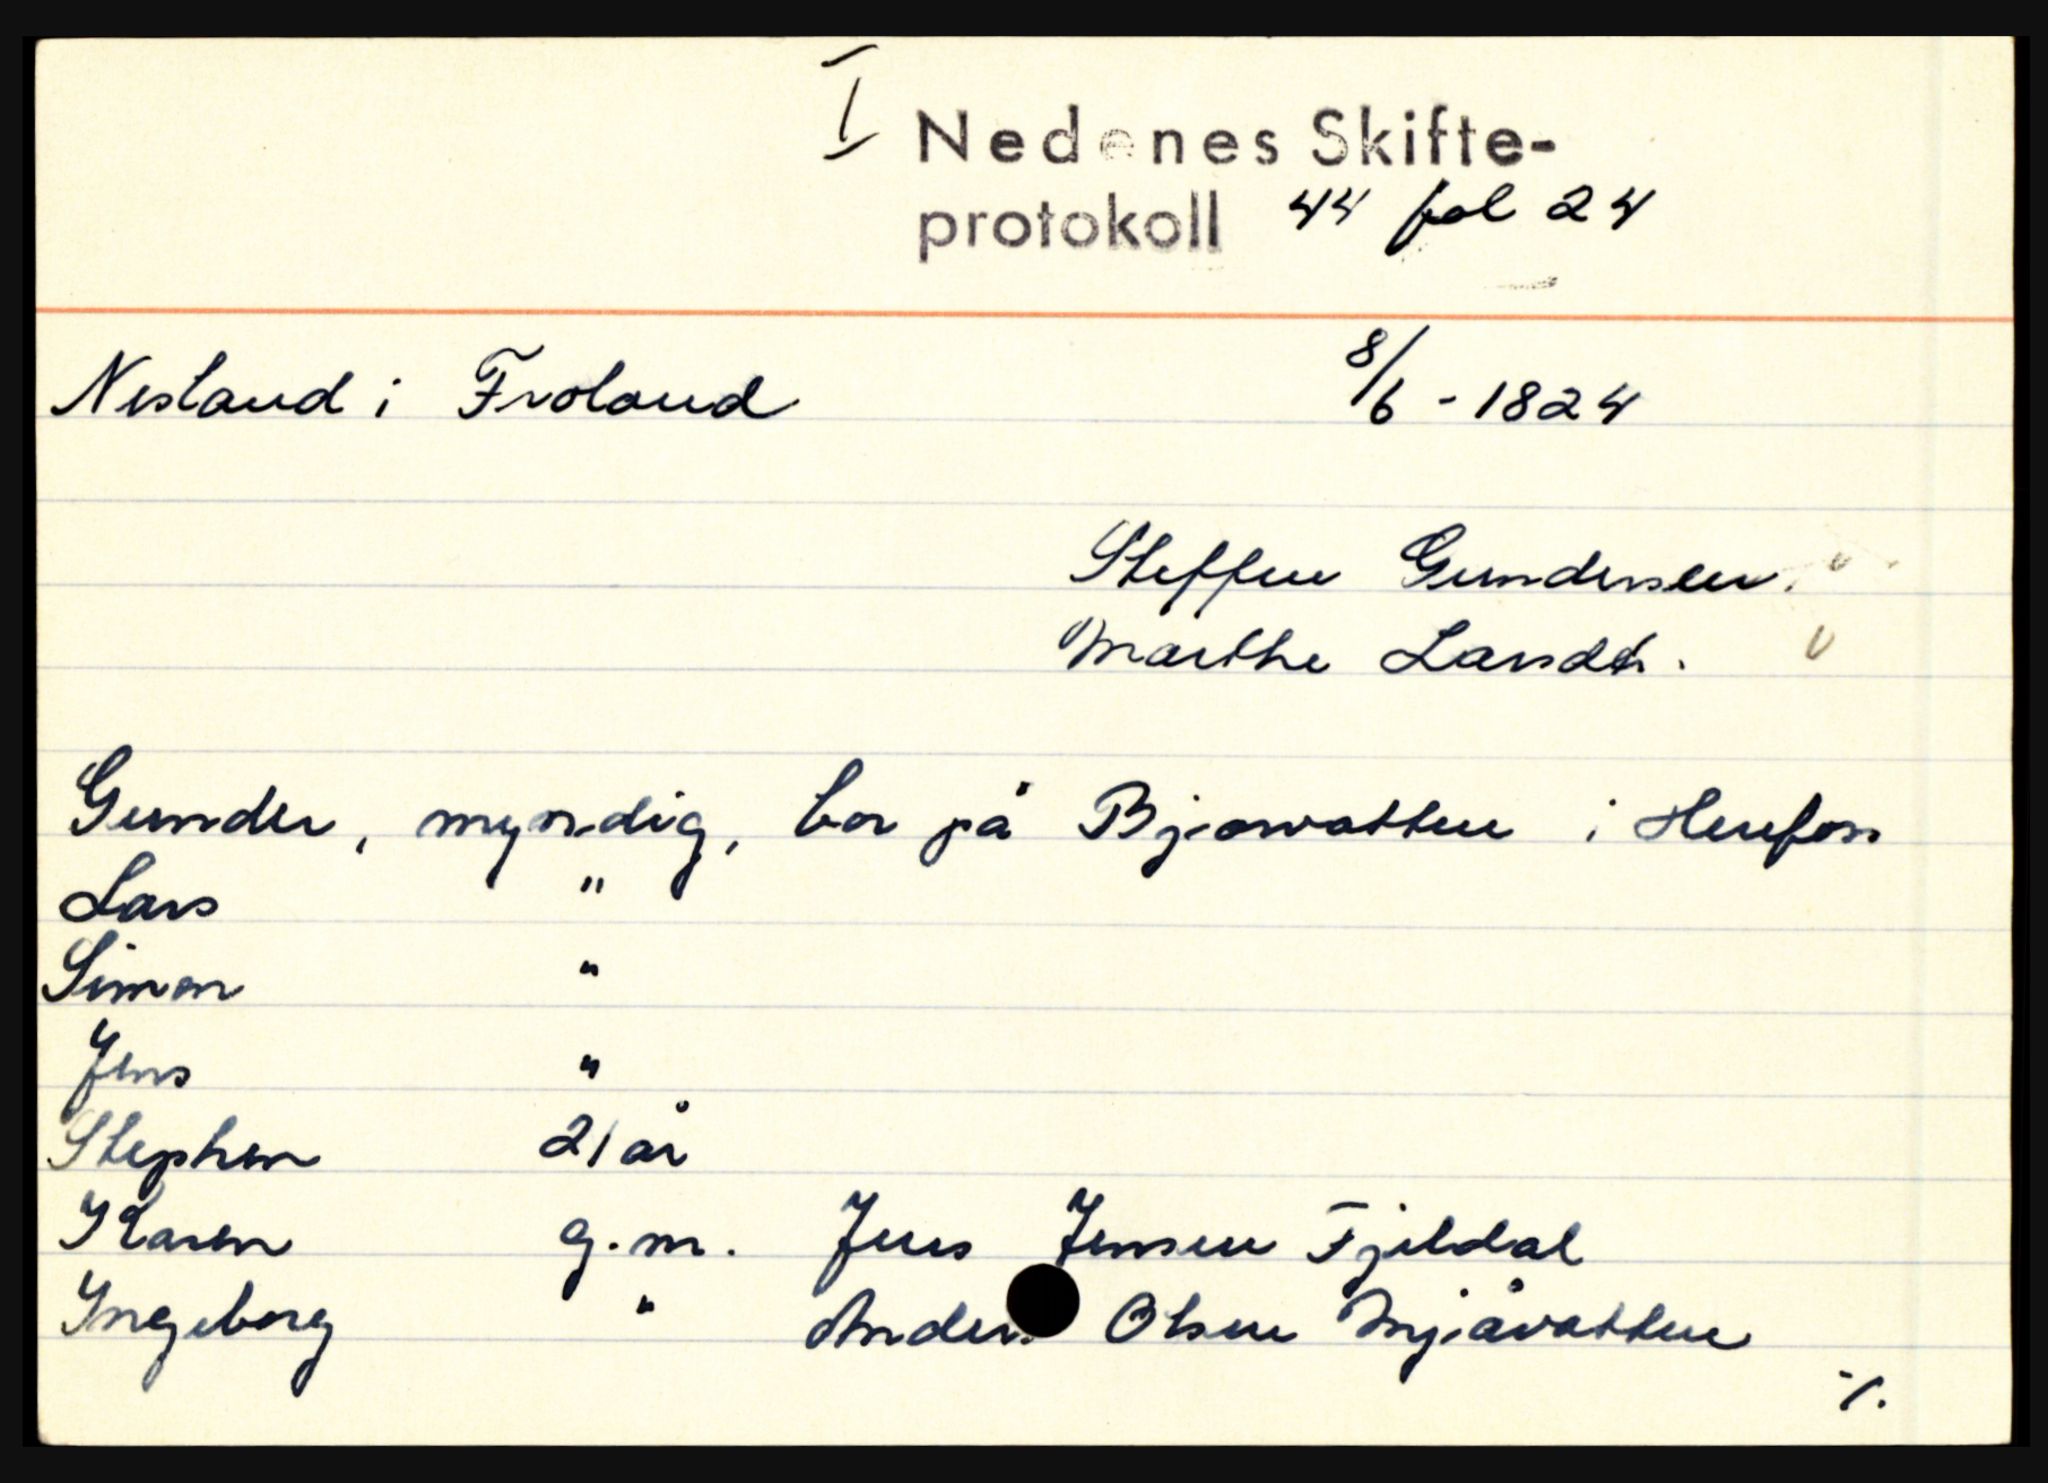 I Nedenes Skifte-
protokoll 44 fol 24
Nesland i Froland 8/6 - 1824
Steffen Gundersen.
Marthe Larsdt.
Gunder, myndig, bor på Bjorvatten i Herefoss
Lars "
Simon "
Jens "
Stephen 21 år
Karen g.m. Jens Jensen Fjeldal
Ingeborg " Anders Olsen Mjåvatten
·/.